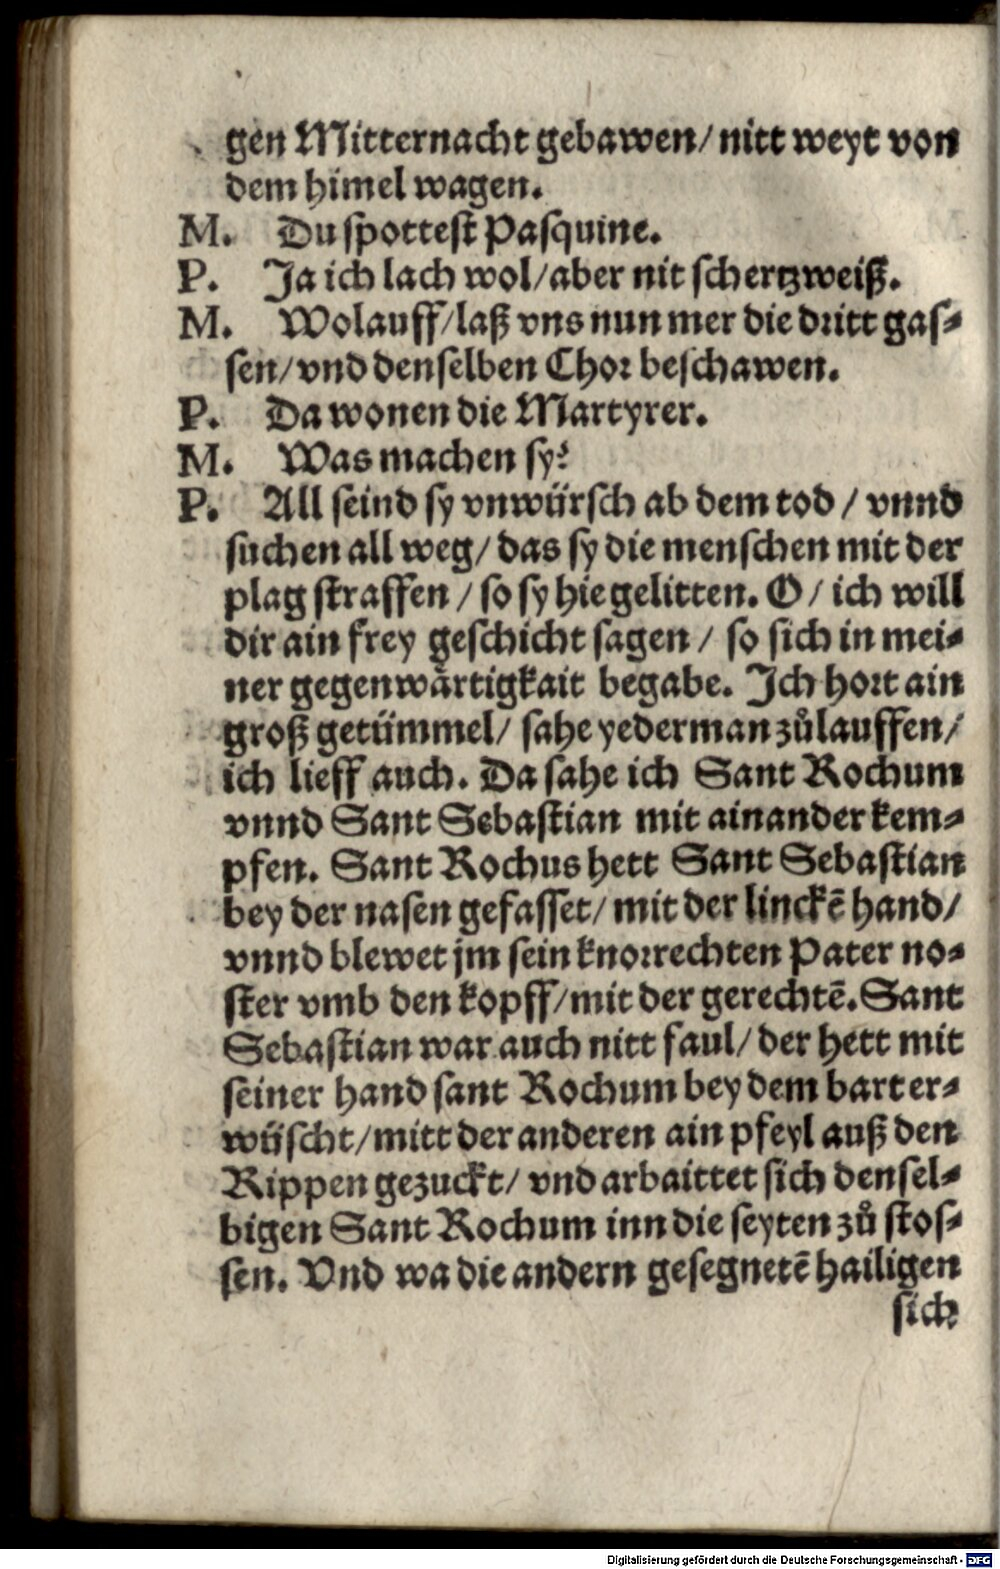 gen Mitternacht gebawen/ nitt weyt von
dem himel wagen.
M. Du spottest Pasquine.
P. Ja ich lach wol/aber nit schertzweiß.
M. Wolauff/laß vns nun mer die dritt gas⸗
sen/vnd denselben Chor beschawen.
P. Da wonen die Martyrer.
M. Was machen sy?
P. All seind sy vnwürsch ab dem tod / vnnd
suchen all weg/ das sy die menschen mit der
plag straffen / so sy hie gelitten. O/ ich will
dir ain frey geschicht sagen / so sich in mei⸗
ner gegenwärtigkait begabe. Ich hort ain
groß getümmel/ sahe yederman zůlauffen/
ich lieff auch. Da sahe ich Sant Rochum
vnnd Sant Sebastian mit ainander kem⸗
pfen. Sant Rochus hett Sant Sebastian
bey der nasen gefasset/ mit der linckē hand/
vnnd blewet jm sein knorrechten Pater no⸗
ster vmb den kopff/mit der gerechtē. Sant
Sebastian war auch nitt faul/ der hett mit
seiner hand sant Rochum bey dem bart er⸗
wüscht/mitt der anderen ain pfeyl auß den
Rippen gezuckt/ vnd arbaittet sich densel⸗
bigen Sant Rochum inn die seyten zů stos⸗
sen. Vnd wa die andern gesegnetē hailigen
sich
Digitalisierung gefördert durch die Deutsche Forschungsgemeinschaft - DFG